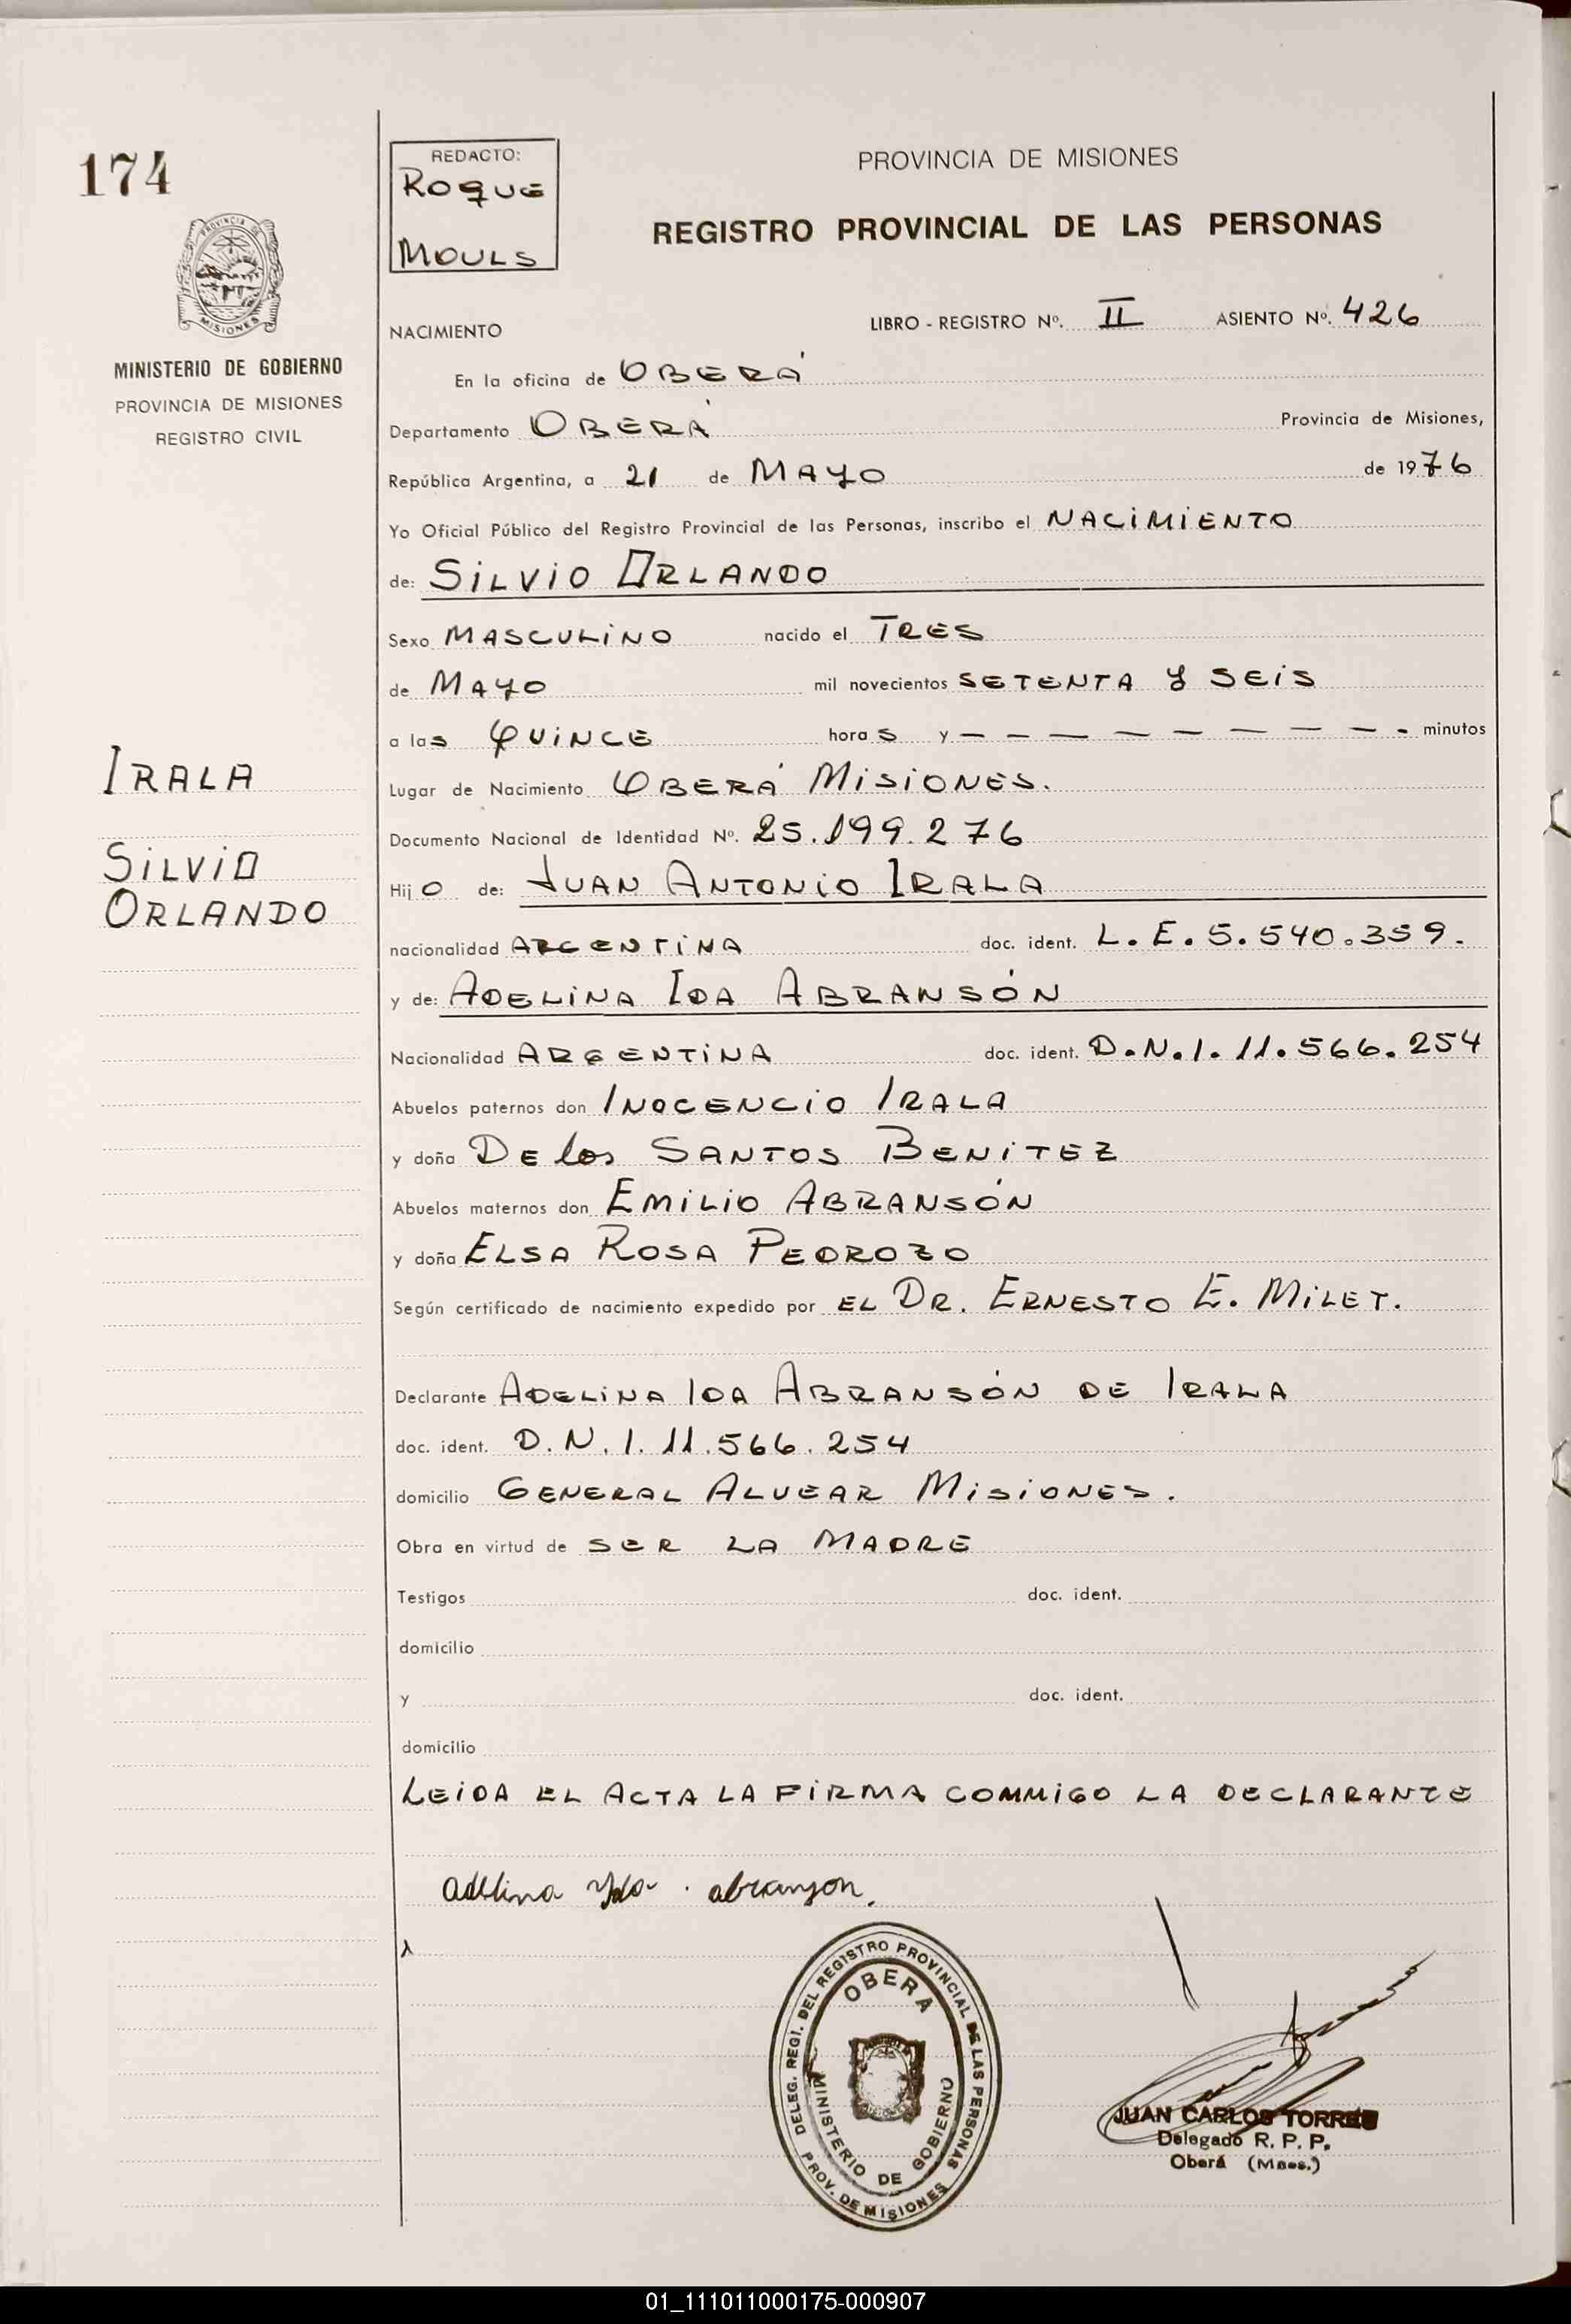 174
REDACTO:
ROQUE
MOULS
PROVINCIA DE MISIONES
REGISTRO PROVINCIAL DE LAS PERSONAS
PROVINCIA DE
MISIONES
MINISTERIO DE GOBIERNO
PROVINCIA DE MISIONES
REGISTRO CIVIL
NACIMIENTO
LIBRO - REGISTRO Nº. II ASIENTO Nº. 426
En la oficina de OBERÁ
Departamento OBERÁ Provincia de Misiones,
República Argentina, a 21 de MAYO de 1976
Yo Oficial Público del Registro Provincial de las Personas, inscribo el NACIMIENTO
de: SILVIO ORLANDO
Sexo MASCULINO nacido el TRES
de MAYO mil novecientos SETENTA Y SEIS
a las QUINCE horas y — — — — — — — — minutos
IRALA
SILVIO
ORLANDO
Lugar de Nacimiento OBERÁ MISIONES.
Documento Nacional de Identidad Nº. 25.199.276
Hijo de: JUAN ANTONIO IRALA
nacionalidad ARGENTINA doc. ident. L.E.5.540.359.
y de: ADELINA IDA ABRANSÓN
Nacionalidad ARGENTINA doc. ident. D.N.I. 11.566.254
Abuelos paternos don INOCENCIO IRALA
y doña DE los SANTOS BENITEZ
Abuelos maternos don EMILIO ABRANSÓN
y doña ELSA ROSA PEDROZO
Según certificado de nacimiento expedido por EL DR. ERNESTO E. MILET.
Declarante ADELINA IDA ABRANSÓN DE IRALA
doc. ident. D.N.I. 11.566.254
domicilio GENERAL ALVEAR MISIONES.
Obra en virtud de SER LA MADRE
Testigos doc. ident.
domicilio
y doc. ident.
domicilio
LEIDA EL ACTA LA FIRMA COMMIGO LA DECLARANTE
adelina Yda abranson.
DELEG. REGI. DEL REGISTRO PROVINCIAL DE LAS PERSONAS
PROV. DE MISIONES
OBERÁ
MINISTERIO DE GOBIERNO
JUAN CARLOS TORRES
Delegado R. P. P.
Oberá (Mnes.)
01_111011000175-000907